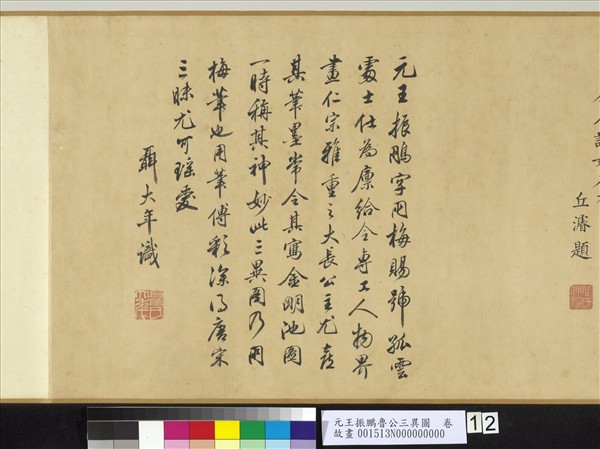 丘濬題
元王振鵬字朋梅賜號孤雲
處士仕為廩給令專工人物界
畫仁宗雅重之大長公主尤喜
其筆墨常令其寫金明池圖
一時稱其神妙此三異圖乃朋
梅筆也用筆傅彩深得唐宋
三昧尤可珍愛
聶大年識
元王振鵬魯公三異圖 卷
故畫 001513N000000000
12